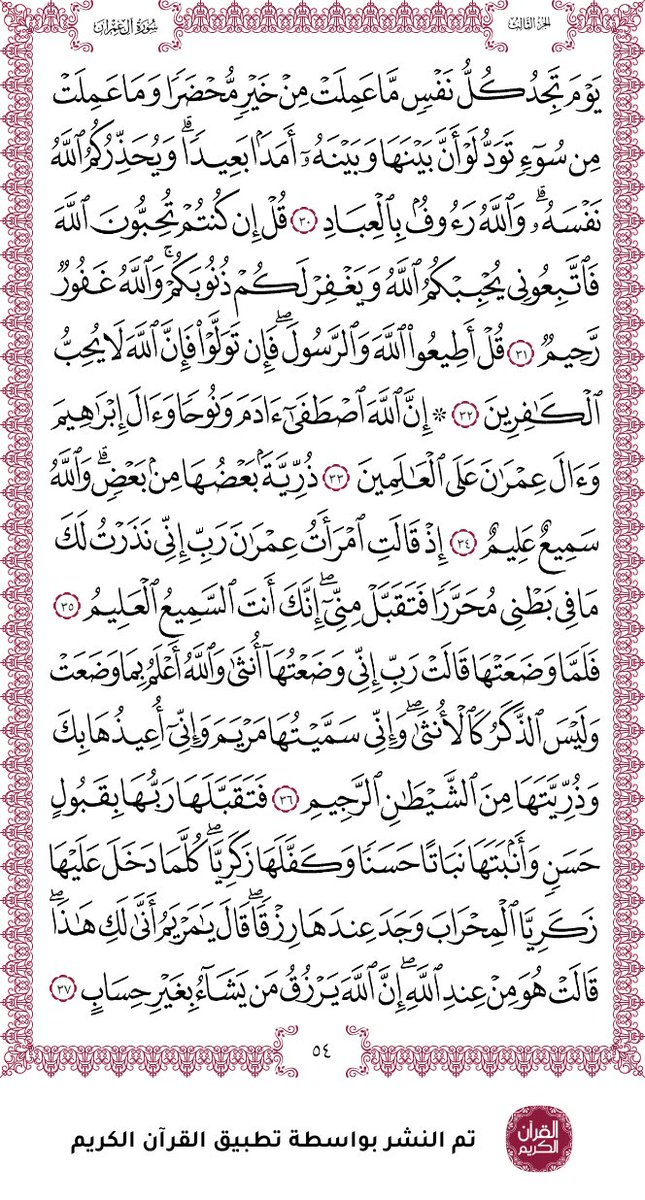 الجزء الثالث
سُورَةُ آلِ عِمْرَان
يَوْمَ تَجِدُ كُلُّ نَفْسٍ مَّا عَمِلَتْ مِنْ خَيْرٍ مُّحْضَرًا وَمَا عَمِلَتْ
مِن سُوٓءٍ تَوَدُّ لَوْ أَنَّ بَيْنَهَا وَبَيْنَهُۥٓ أَمَدَۢا بَعِيدًاۗ وَيُحَذِّرُكُمُ ٱللَّهُ
نَفْسَهُۥۗ وَٱللَّهُ رَءُوفُۢ بِٱلْعِبَادِ ٣٠ قُلْ إِن كُنتُمْ تُحِبُّونَ ٱللَّهَ
فَٱتَّبِعُونِي يُحْبِبْكُمُ ٱللَّهُ وَيَغْفِرْ لَكُمْ ذُنُوبَكُمْۚ وَٱللَّهُ غَفُورٌ
رَّحِيمٌ ٣١ قُلْ أَطِيعُوا۟ ٱللَّهَ وَٱلرَّسُولَۖ فَإِن تَوَلَّوْا۟ فَإِنَّ ٱللَّهَ لَا يُحِبُّ
ٱلْكَٰفِرِينَ ٣٢ ۞ إِنَّ ٱللَّهَ ٱصْطَفَىٰٓ ءَادَمَ وَنُوحًا وَءَالَ إِبْرَٰهِيمَ
وَءَالَ عِمْرَٰنَ عَلَى ٱلْعَٰلَمِينَ ٣٣ ذُرِّيَّةَۢ بَعْضُهَا مِنۢ بَعْضٍۗ وَٱللَّهُ
سَمِيعٌ عَلِيمٌ ٣٤ إِذْ قَالَتِ ٱمْرَأَتُ عِمْرَٰنَ رَبِّ إِنِّي نَذَرْتُ لَكَ
مَا فِي بَطْنِي مُحَرَّرًا فَتَقَبَّلْ مِنِّيٓۖ إِنَّكَ أَنتَ ٱلسَّمِيعُ ٱلْعَلِيمُ ٣٥
فَلَمَّا وَضَعَتْهَا قَالَتْ رَبِّ إِنِّي وَضَعْتُهَآ أُنثَىٰ وَٱللَّهُ أَعْلَمُ بِمَا وَضَعَتْ
وَلَيْسَ ٱلذَّكَرُ كَٱلْأُنثَىٰۖ وَإِنِّي سَمَّيْتُهَا مَرْيَمَ وَإِنِّيٓ أُعِيذُهَا بِكَ
وَذُرِّيَّتَهَا مِنَ ٱلشَّيْطَٰنِ ٱلرَّجِيمِ ٣٦ فَتَقَبَّلَهَا رَبُّهَا بِقَبُولٍ
حَسَنٍ وَأَنۢبَتَهَا نَبَاتًا حَسَنًا وَكَفَّلَهَا زَكَرِيَّاۖ كُلَّمَا دَخَلَ عَلَيْهَا
زَكَرِيَّا ٱلْمِحْرَابَ وَجَدَ عِندَهَا رِزْقًاۖ قَالَ يَٰمَرْيَمُ أَنَّىٰ لَكِ هَٰذَاۖ
قَالَتْ هُوَ مِنْ عِندِ ٱللَّهِۖ إِنَّ ٱللَّهَ يَرْزُقُ مَن يَشَآءُ بِغَيْرِ حِسَابٍ ٣٧
٥٤
القرآن الكريم
تم النشر بواسطة تطبيق القرآن الكريم